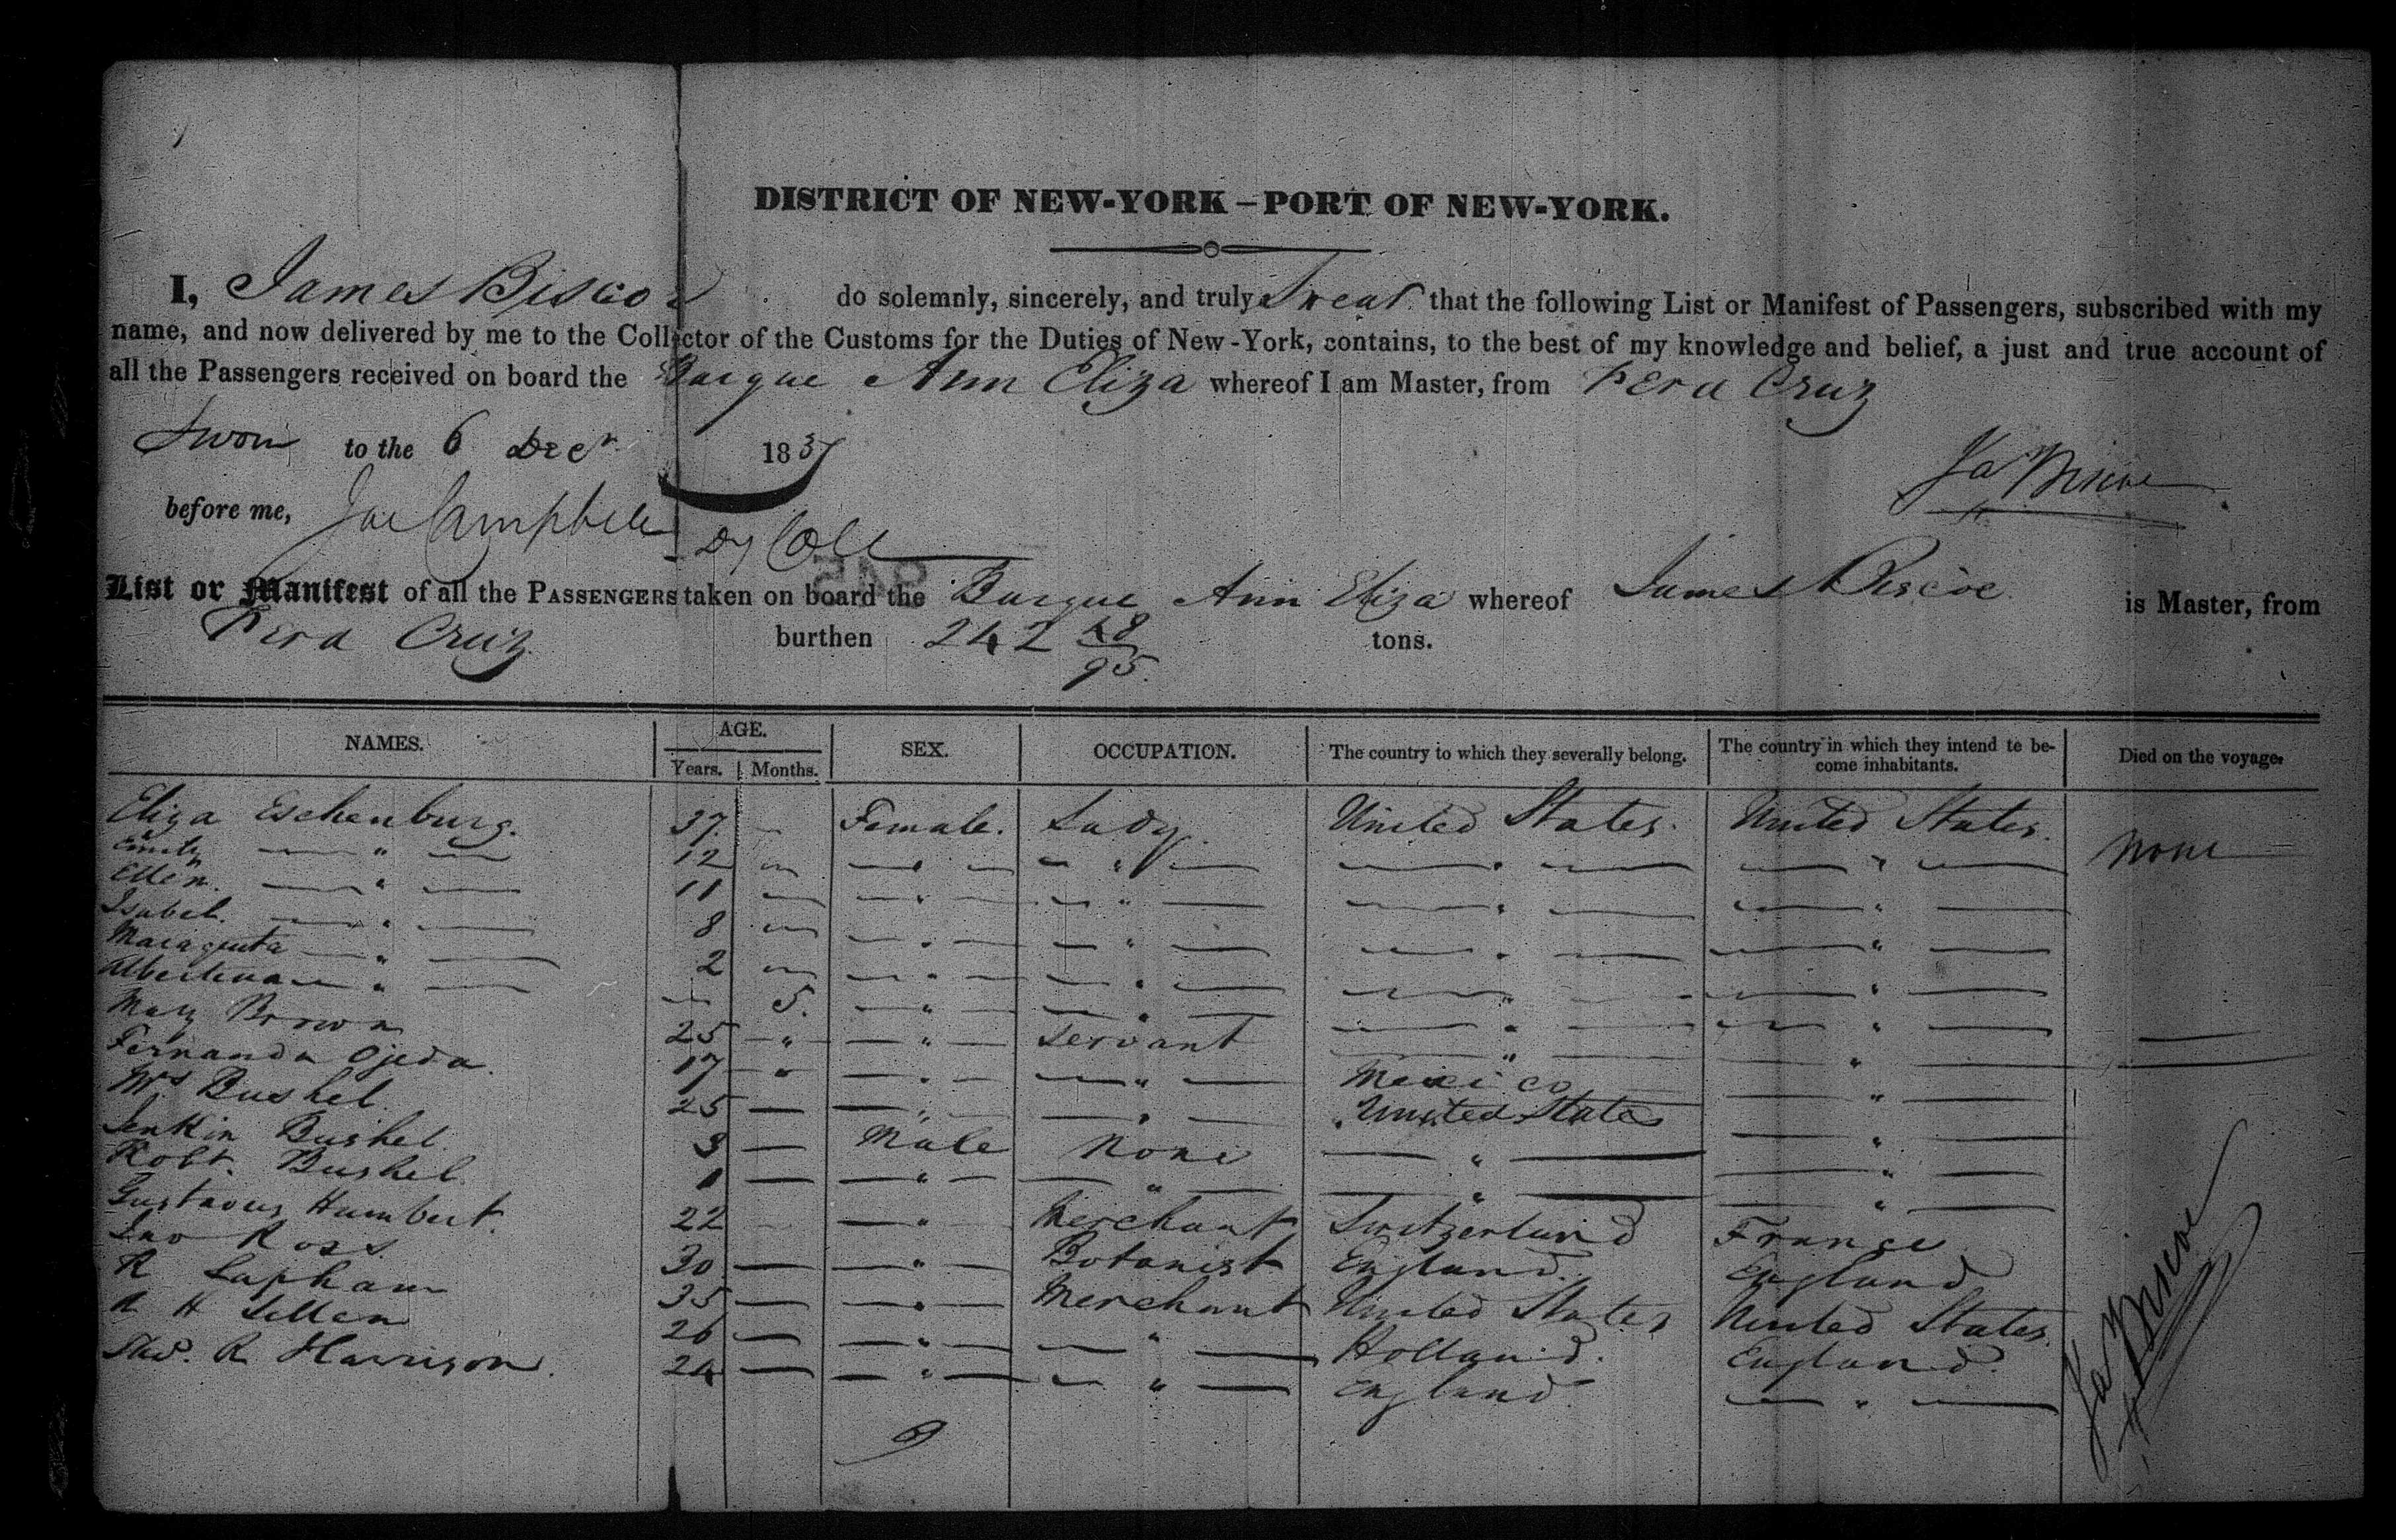 DISTRICT OF NEW-YORK – PORT OF NEW-YORK.
I, James Biscoe do solemnly, sincerely, and truly Swear that the following List or Manifest of Passengers, subscribed with my
name, and now delivered by me to the Collector of the Customs for the Duties of New-York, contains, to the best of my knowledge and belief, a just and true account of
all the Passengers received on board the Barque Ann Eliza whereof I am Master, from Vera Cruz
Sworn to the 6 Decr 1837
Ja Biscoe
before me, Campbell Dy Coll
945
List or Manifest of all the PASSENGERS taken on board the Barque Ann Eliza whereof James Biscoe is Master, from
Vera Cruz burthen 242 48/95 tons.
NAMES. AGE. SEX. OCCUPATION. The country to which they severally belong. The country in which they intend te become inhabitants. Died on the voyage.
Years. Months.
Eliza Eschenburg. 37. — Female. Lady United States. United States. None
Emily — " — 12 — — " — — " — — " — — " —
Ellen. — " — 11 — — " — — " — — " — — " —
Isabel. — " — 8 — — " — — " — — " — — " —
— " — 2 — — " — — " — — " — — " —
— " — — 5. — " — — " — — " — — " —
Mary Brown 25 — " — — " — Servant — " — — " —
Fernanda Ojeda. 17 — " — — " — — " — Mexico — " —
Mrs Bushel. 25 — — " — — " — United States — " —
Jenkin Bushel 3 — Male None — " — — " —
Robt. Bushel 1 — — " — — " — — " — — " —
Gustavus Humbert. 22 — — " — Merchant Switzerland France
Jno Ross. 30 — — " — Botanist England. England
R Lapham 35 — — " — Merchant United States United States.
R H 26 — — " — — " — Holland. England.
R Harrison. 24 — — " — — " — England. — " —
Ja Biscoe